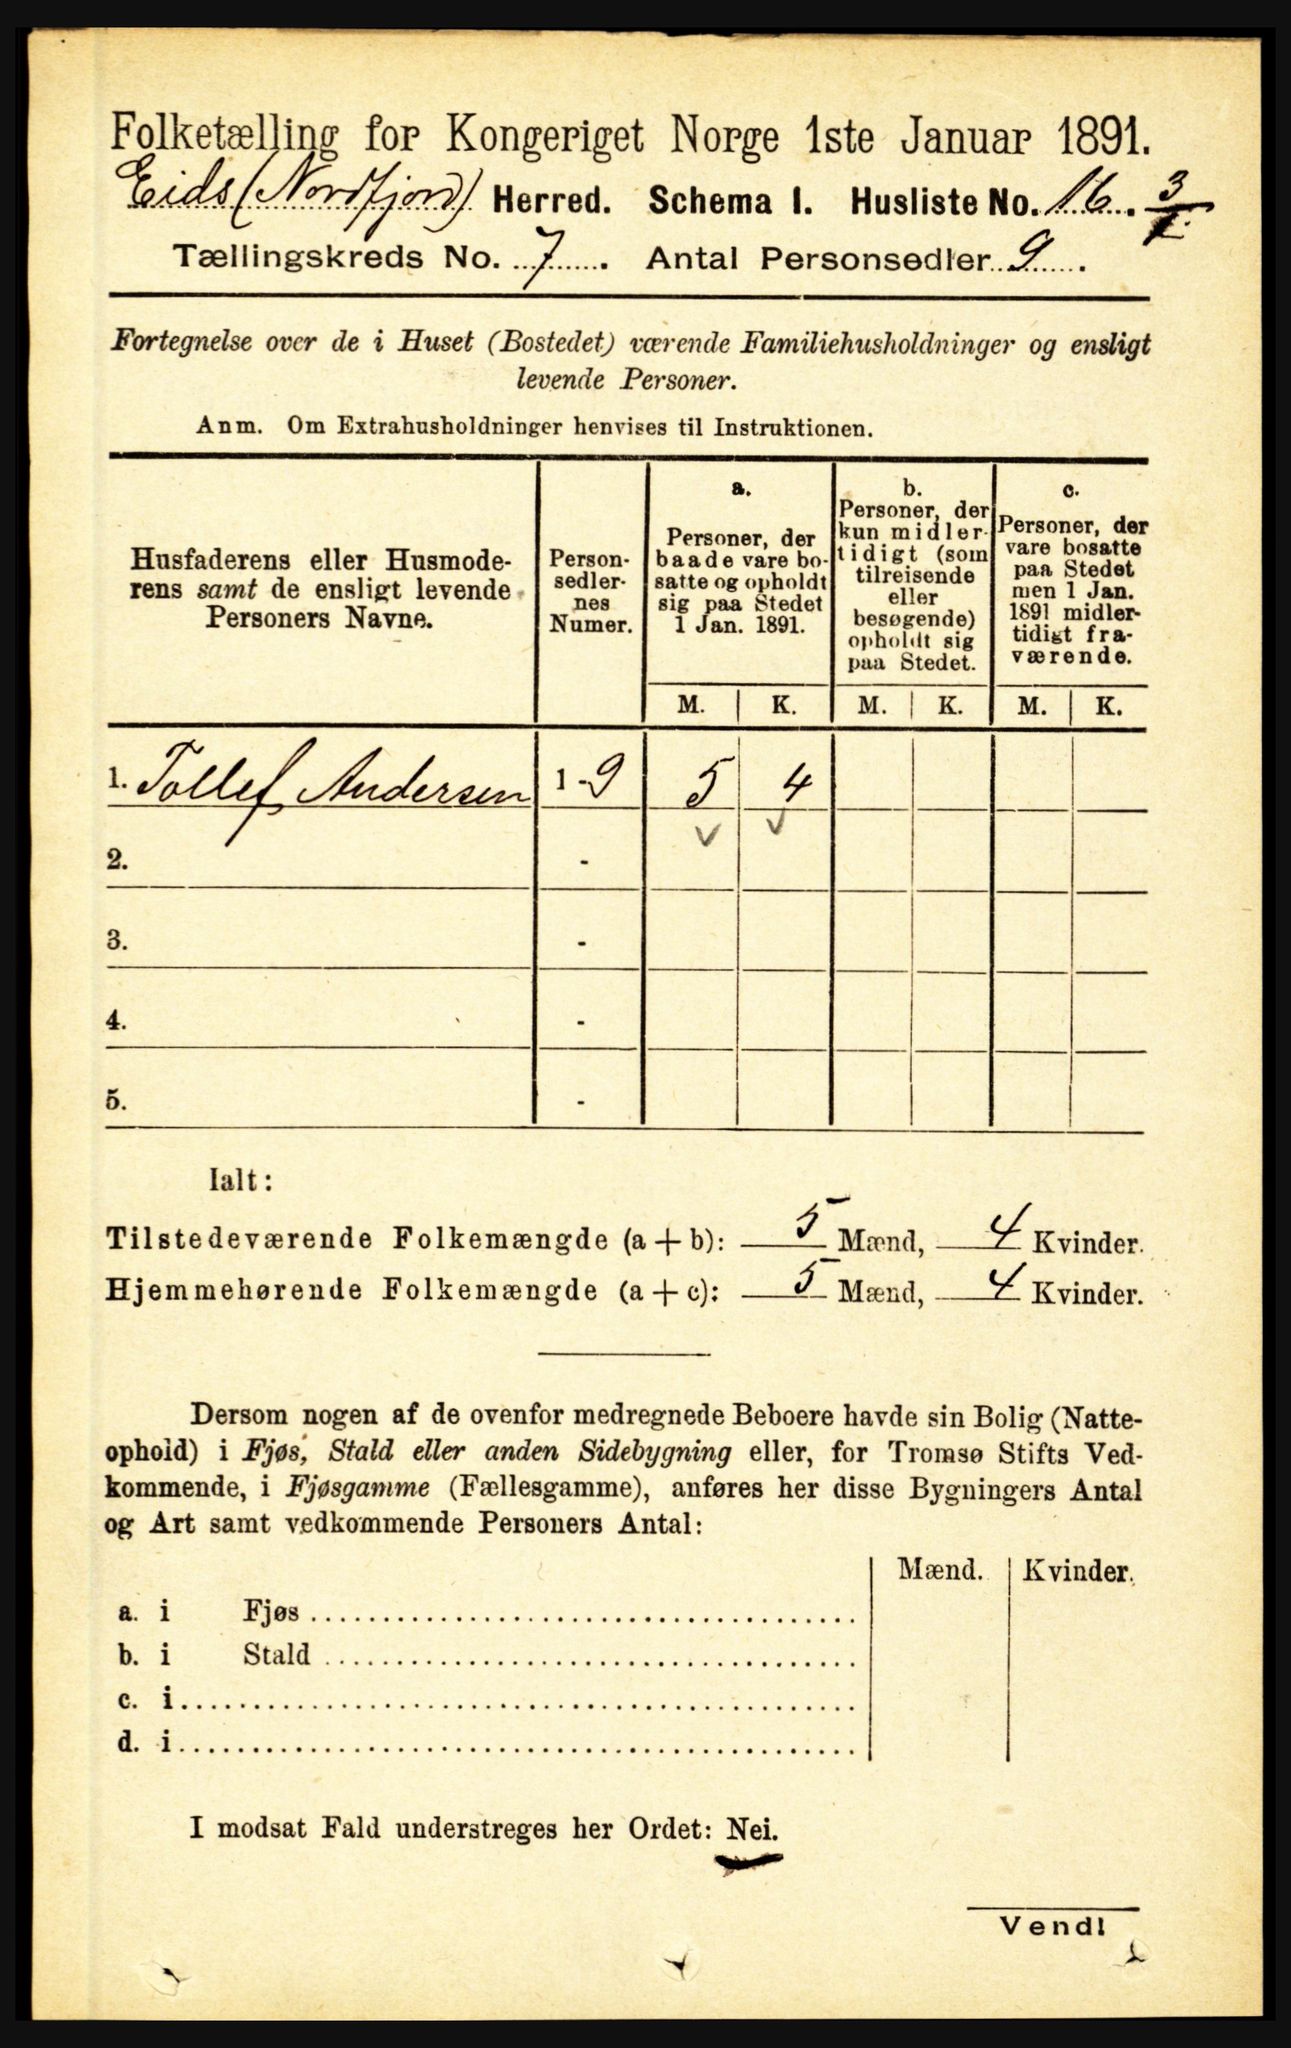 Folketælling for Kongeriget Norge 1ste Januar 1891.
Eids (Nordfjord) Herred. Schema I. Husliste No. 16. 3/1.
Tællingskreds No. 7. Antal Personsedler 9.
Fortegnelse over de i Huset (Bostedet) værende Familiehusholdninger og ensligt
levende Personer.
Anm. Om Extrahusholdninger henvises til Instruktionen.
Husfaderens eller Husmode-
rens samt de ensligt levende
Personers Navne.
Person-
sedler-
nes
Numer.
a.
Personer, der
baade vare bo-
satte og opholdt
sig paa Stedet
1 Jan. 1891.
b.
Personer, der
kun midler-
tidigt (som
tilreisende
eller
besøgende)
opholdt sig
paa Stedet.
c.
Personer, der
vare bosatte
paa Stedet
men 1 Jan.
1891 midler-
tidigt fra-
værende.
M. K. M. K. M. K.
1. Tollef Andersen 1 - 9 5 4
2. -
3. -
4. -
5. -
Ialt:
Tilstedeværende Folkemængde (a + b): 5 Mænd, 4 Kvinder.
Hjemmehørende Folkemængde (a + c): 5 Mænd, 4 Kvinder.
Dersom nogen af de ovenfor medregnede Beboere havde sin Bolig (Natte-
ophold) i Fjøs, Stald eller anden Sidebygning eller, for Tromsø Stifts Ved-
kommende, i Fjøsgamme (Fællesgamme), anføres her disse Bygningers Antal
og Art samt vedkommende Personers Antal:
Mænd. Kvinder.
a. i Fjøs
b. i Stald
c. i
d. i
I modsat Fald understreges her Ordet: Nei.
Vend!